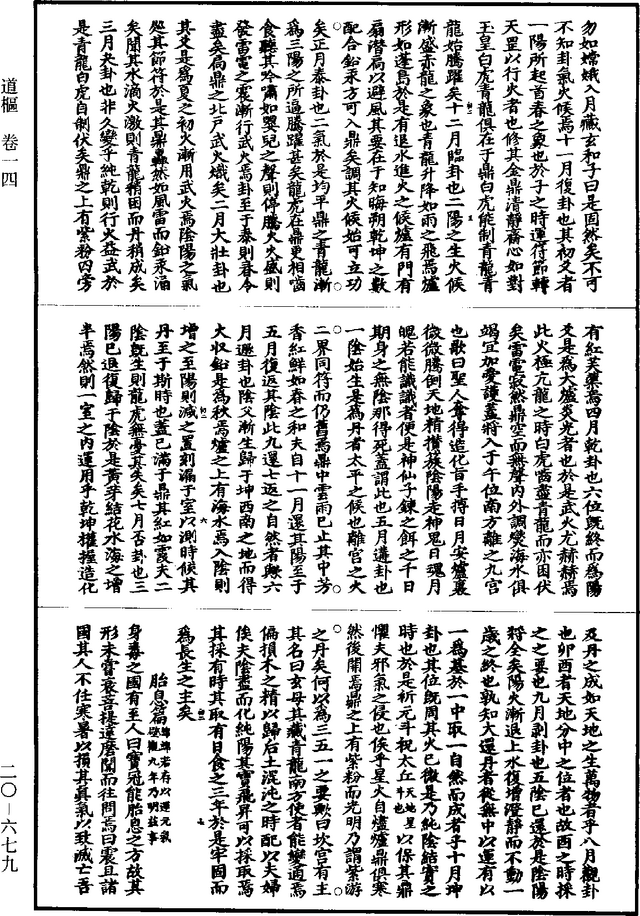 道樞 卷一四
二〇—六七九
勿如嫦娥入月藏玄和子曰是固然矣不可
不知卦氣火候焉十一月復卦也其初爻者
一陽所起首春之象也於子之時運符節轉
天罡以行火者也修其金鼎清靜齋心如對
玉皇白虎青龍俱在于鼎白虎能制青龍青
龍始騰躍矣十二月臨卦也二陽之生火候
漸盛赤龍之象也青龍升降如雨之飛焉爐
形如蓬島於是有退水進火之候爐有門有
扇潛扃以避風其要在于知晦朔乾坤之數
配合鉛汞方可入鼎矣調其火候始可立功
矣正月泰卦也二氣於是均平鼎之青龍漸
爲三陽之所逼騰躍甚矣龍虎在鼎更相嚙
食聽其吟嘯如嬰兒之聲則停騰火火盛則
發雷電之震漸行武火焉卦至于泰則春令
盡矣扃鼎之北戶武火熾矣二月大壯卦也
其爻是爲夏之初火漸用武火焉陰陽之氣
处其節符於是其鼎轟然如風雷而鉛汞滔
矣聞其水滴火激則青龍精困而丹稍成矣
三月夬卦也非久變乎純乾則行火益武於
是青龍白虎自制伏矣鼎之上有紫粉四旁
有紅芙蕖焉四月乾卦也六位既終而爲陽
爻是爲大爐炎光者也於是武火尤赫赫焉
此火極亢龍之時白虎嚙盡青龍而亦困伏
矣雷電寂然鼎空而無聲内外調燮海水俱
竭宜加愛護蓋將入于午位南方離之九宮
也歌曰聖人奪得造化首手摶日月安爐裏
微微騰倒天地精攢簇陰陽走神鬼日魂月
魄若能識識者便是神仙子鍊之餌之千日
期身之無陰那得死蓋謂此也五月遘卦也
一陰始生是爲丹者太平之候也離宮之火
二界同符而仍舊焉鼎中雲雨已止其中芳
香紅鮮如春之和夫自十一月還其陽至于
五月復返其陰此九還七返之自然者與六
月遯卦也陰父漸生歸于坤西南之地而得
火收鉛是爲秋焉爐之上有海水焉入陰則
增之至陽則減之置刻漏于室以測時候其
丹至于斯時也蓋已滿于鼎其紅如霞夫二
陰既生則龍虎無憂其失矣七月否卦也三
陽已退復歸于陰於是黃芽結花水海之增
半焉然則一室之内運用乎乾坤權握造化
及丹之成如天地之生萬物者乎八月觀卦
也卯酉者天地分中之位者也故酉之時採
之之要也九月剥卦也五陰已遠於是陰陽
將全矣陽火漸退上水復增澄靜而不動一
歲之終也孰知大還丹者從無中以運有以
一爲基於一中取一自然而成者乎十月坤
卦也其位既周其火已微是乃純陰結實之
時也於是祈元斗祝太丘天地星斗也以保其鼎
懼夫邪氣之侵也俟乎星火自爐爐鼎俱寒
然後開焉鼎之上有紫粉而光明乃謂紫游
之丹矣何以爲三五一之要歟曰坎宮有主
其名曰玄母其藏青龍南方使者能變通焉
偏損木之精以歸后土混沌之時配以夫婦
俟夫陰盡而化純陽其寶飛昇可以採取焉
其採有時其取有日食之三年於是牢固而
爲長生之主矣
胎息篇綿綿若存以運元氣壁觀九年乃明玆事
身毒之國有至人曰寳冠能胎息之方故其
形未嘗衰菩提達磨聞而往問焉曰震旦諸
國其人不任寒暑以損其真氣以致滅亡吾